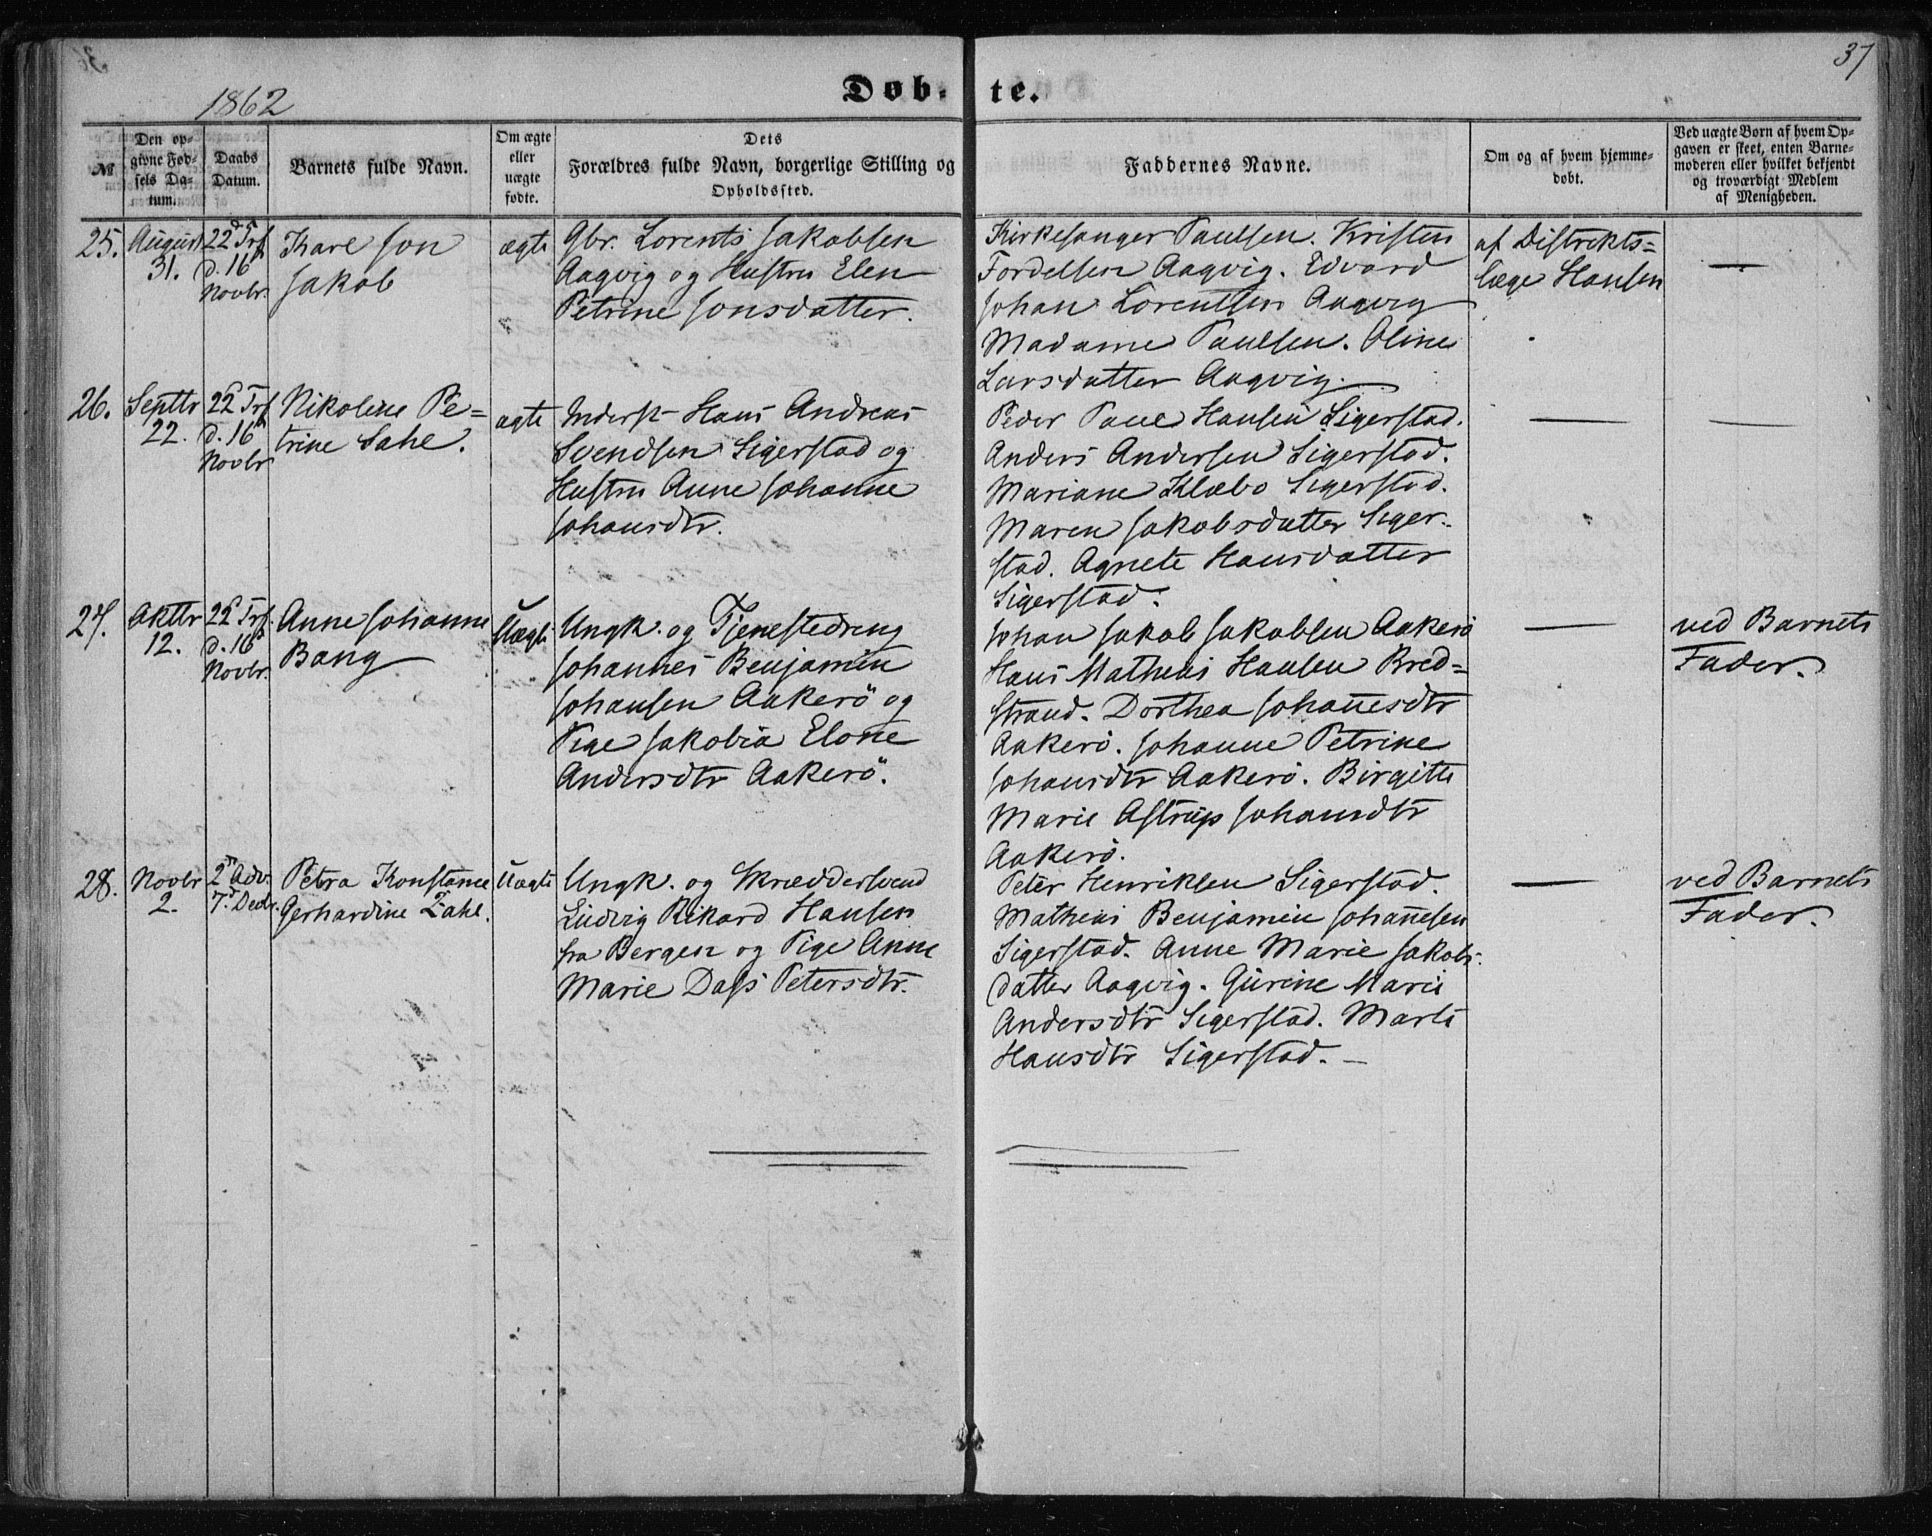 37
1862
Døb-
te.
№
Den op-
givne Fød-
sels Da-
tum.
Daabs
Datum.
Barnets fulde Navn.
Om ægte
eller
uægte
fødte.
Dets
Forældres fulde Navn, borgerlige Stilling og
Opholdssted.
Faddernes Navne.
Om og af hvem hjemme-
døbt.
Ved uægte Børn af hvem Op-
gaven er skeet, enten Barne-
moderen eller hvilket bekjendt
og troværdigt Medlem
af Menigheden.
25.
August
31.
22d Trf
d. 16d
Novbr.
Kare Jon
Jakob
ægte
Gbr. Lorents Jakobsen
Aagvig og Hustru Elen
Petrine Jonsdatter.
Kirkesanger Paulsen. Kristen
Fordelsen Aagvig. Edvard
Johan Lorentsen Aagvig
Madame Paulsen. Oline
Larsdatter Aagvig.
af Distrikts=
læge Hansen
—
26.
Septbr
22.
22d Trf
d. 16d
Novbr
Nikoline Pe=
trine Sahl.
ægte
Inderst Hans Andreas
Svendsen Sigerstad og
Hustru Anne Johanne
Johansdtr.
Peder Paul Hansen Sigerstad.
Anders Andersen Sigerstad.
Mariane Klæbo Sigerstad.
Maren Jakobsdatter Siger-
stad. Agnete Hansdatter
Sigerstad.
—
—
27.
Oktbr
12.
22d Trf.
d. 16d
Novbr.
Anne Johanne
Bang
Uægte
Ungk. og Tjenestedreng
Johannes Benjamin
Johansen Aakerö og
Pige Jakobia Elone
Andersdtr Aakerö.
Johan Jakob Jakobsen Aakerö
Hans Mathias Hansen Bred=
strand. Dorthea Johannesdtr
Aakerö. Johanne Petrine
Johansdtr Aakerö. Birgitte
Marie Astrup Johansdtr
Aakerö.
—
ved Barnets
Fader.
28.
Novbr
2.
2dn Adv.
7d Decbr.
Petra Konstance
Gerhardine Zahl.
Uægte
Ungk. og Skræddersvend
Ludvig Rikard Hansen
fra Bergen og Pige Anne
Marie Dass Petersdtr.
Peter Henriksen Sigerstad.
Mathias Benjamin Johannesen
Sigerstad. Anne Marie Jakobs-
datter Aagvig. Gurine Marie
Andersdtr Sigerstad. Marta
Hansdtr Sigerstad. —
—
ved Barnets
Fader.